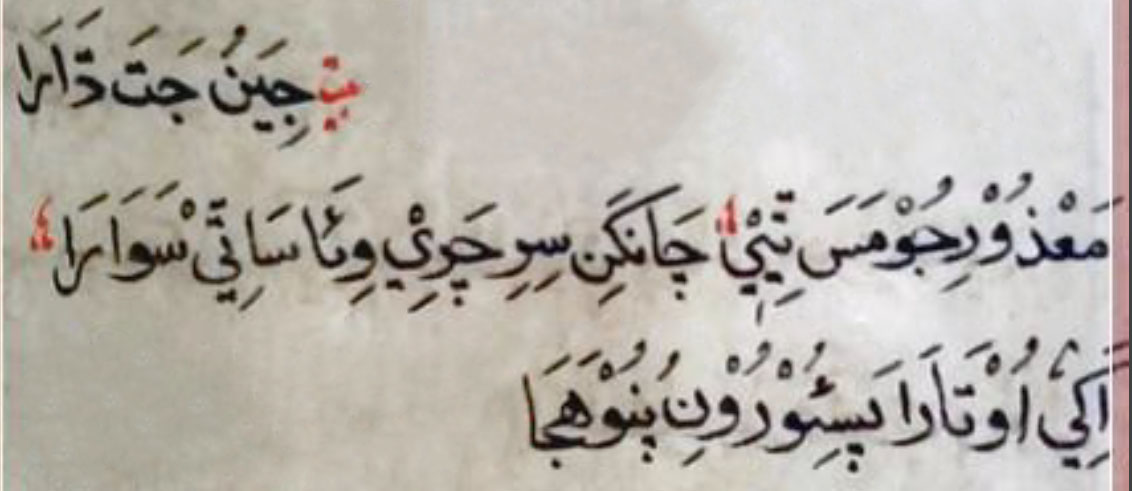 جِيَنُ جَتَ دَّارَا
مَعْذُوْرِجُوْ مَسَ تِّيَيْ؛ چَانکَنِ سِرِ چَرِيْ وِئَا سَاتِّيْ سَوَارَا؛
اَکِيْ اُوْتَارَا پَسِئُوْ رُوْنِ بُنُوْهَجَا